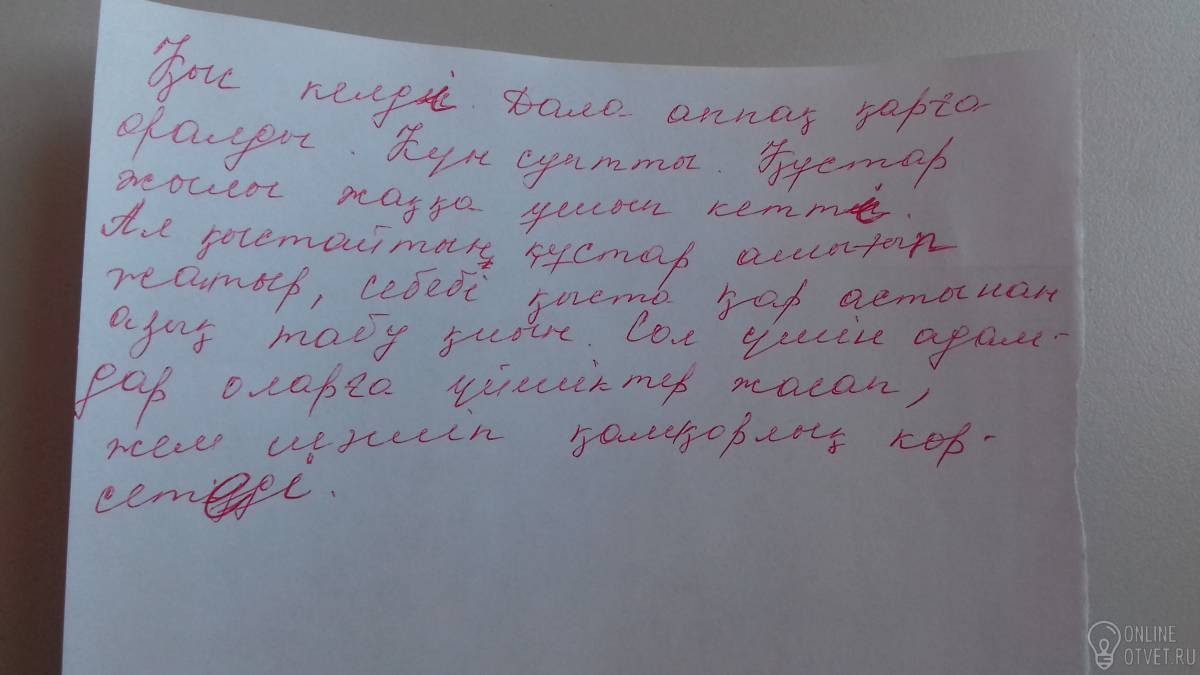 Қыс келді. Дала аппақ қарға
оралды. Күн суытты. Құстар
жылы жаққа ұшып кетті.
Ал қыстайтын құстар
жатыр, себебі қыста қар астынан
азық табу қиын. Сол үшін адам-
дар оларға үйшіктер жасап,
жем шашып қамқорлық көр-
сетеді.
ONLINE
OTVET.RU